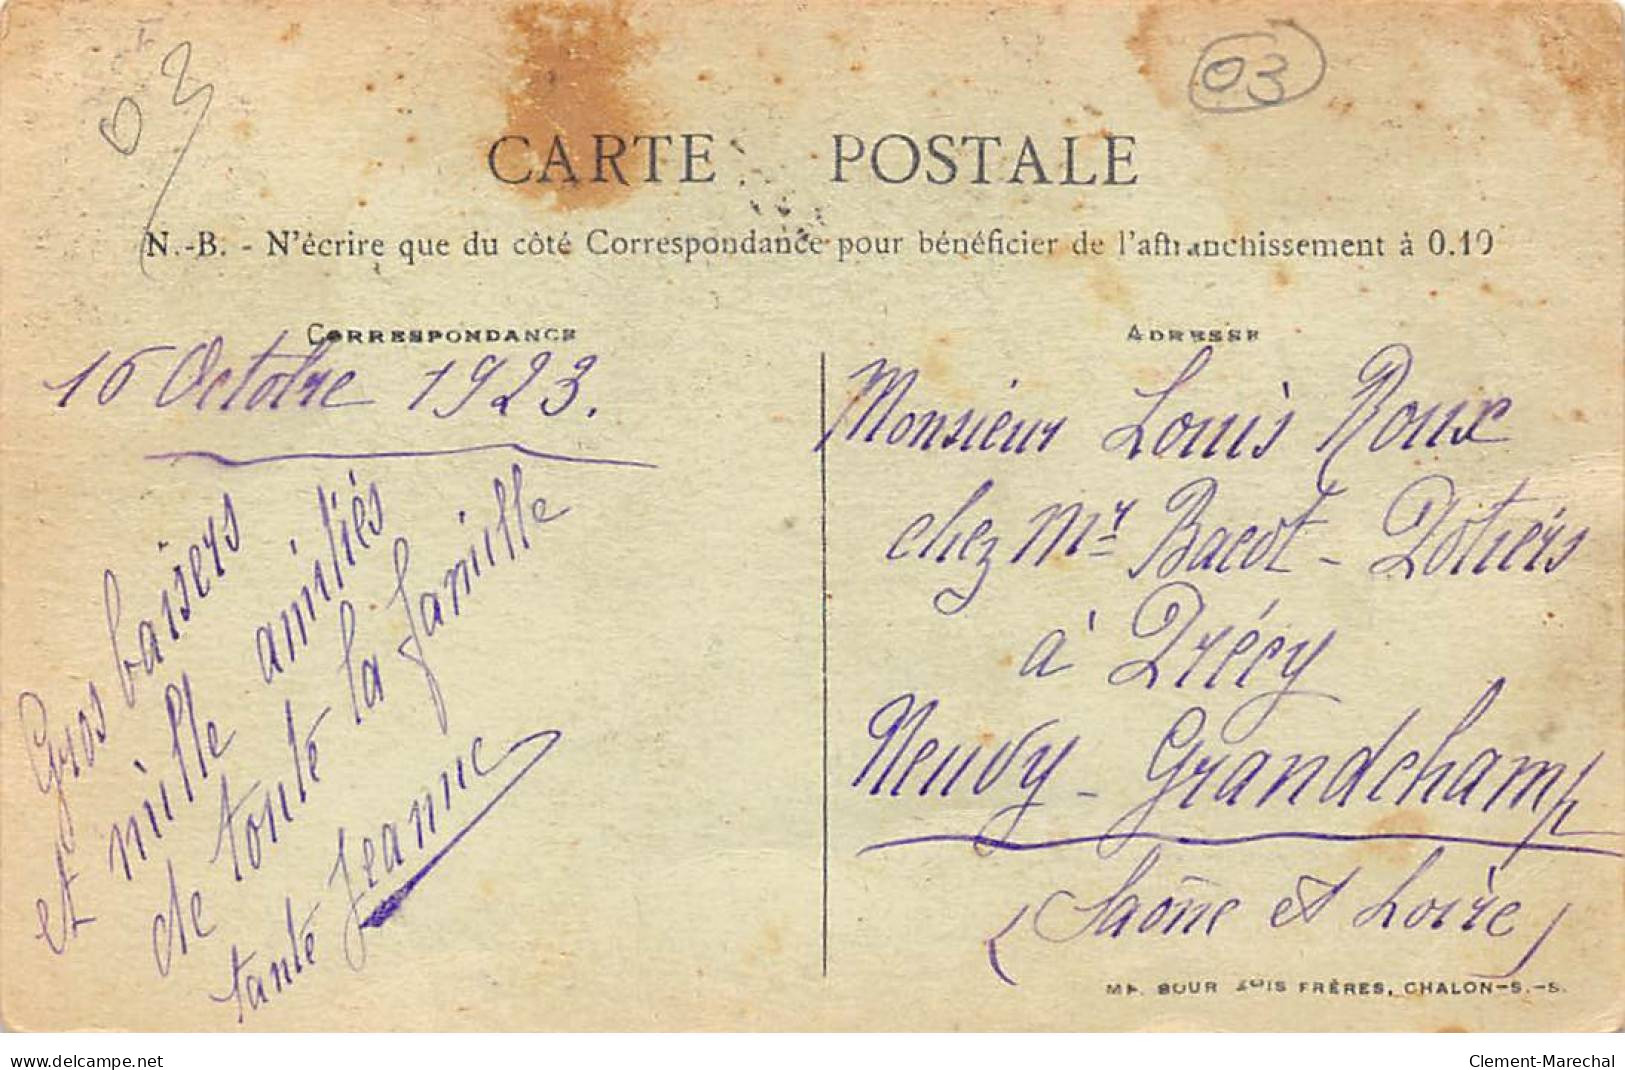 03
03
CARTE POSTALE
N.-B. - N'écrire que du côté Correspondance pour bénéficier de l'affranchissement à 0.10
CORRESPONDANCE
16 Octobre 1923.
Gros baisers
et mille amitiés
de toute la famille
tante Jeanne
ADRESSE
Monsieur Louis Roux
chez Mr Bacot - Potiers
à Drécy
Neuvy - Grandchamp
(Saône et Loire)
BOURGEOIS FRÈRES, CHALON-S.-S.
delcampe.net
Clement-Marechal